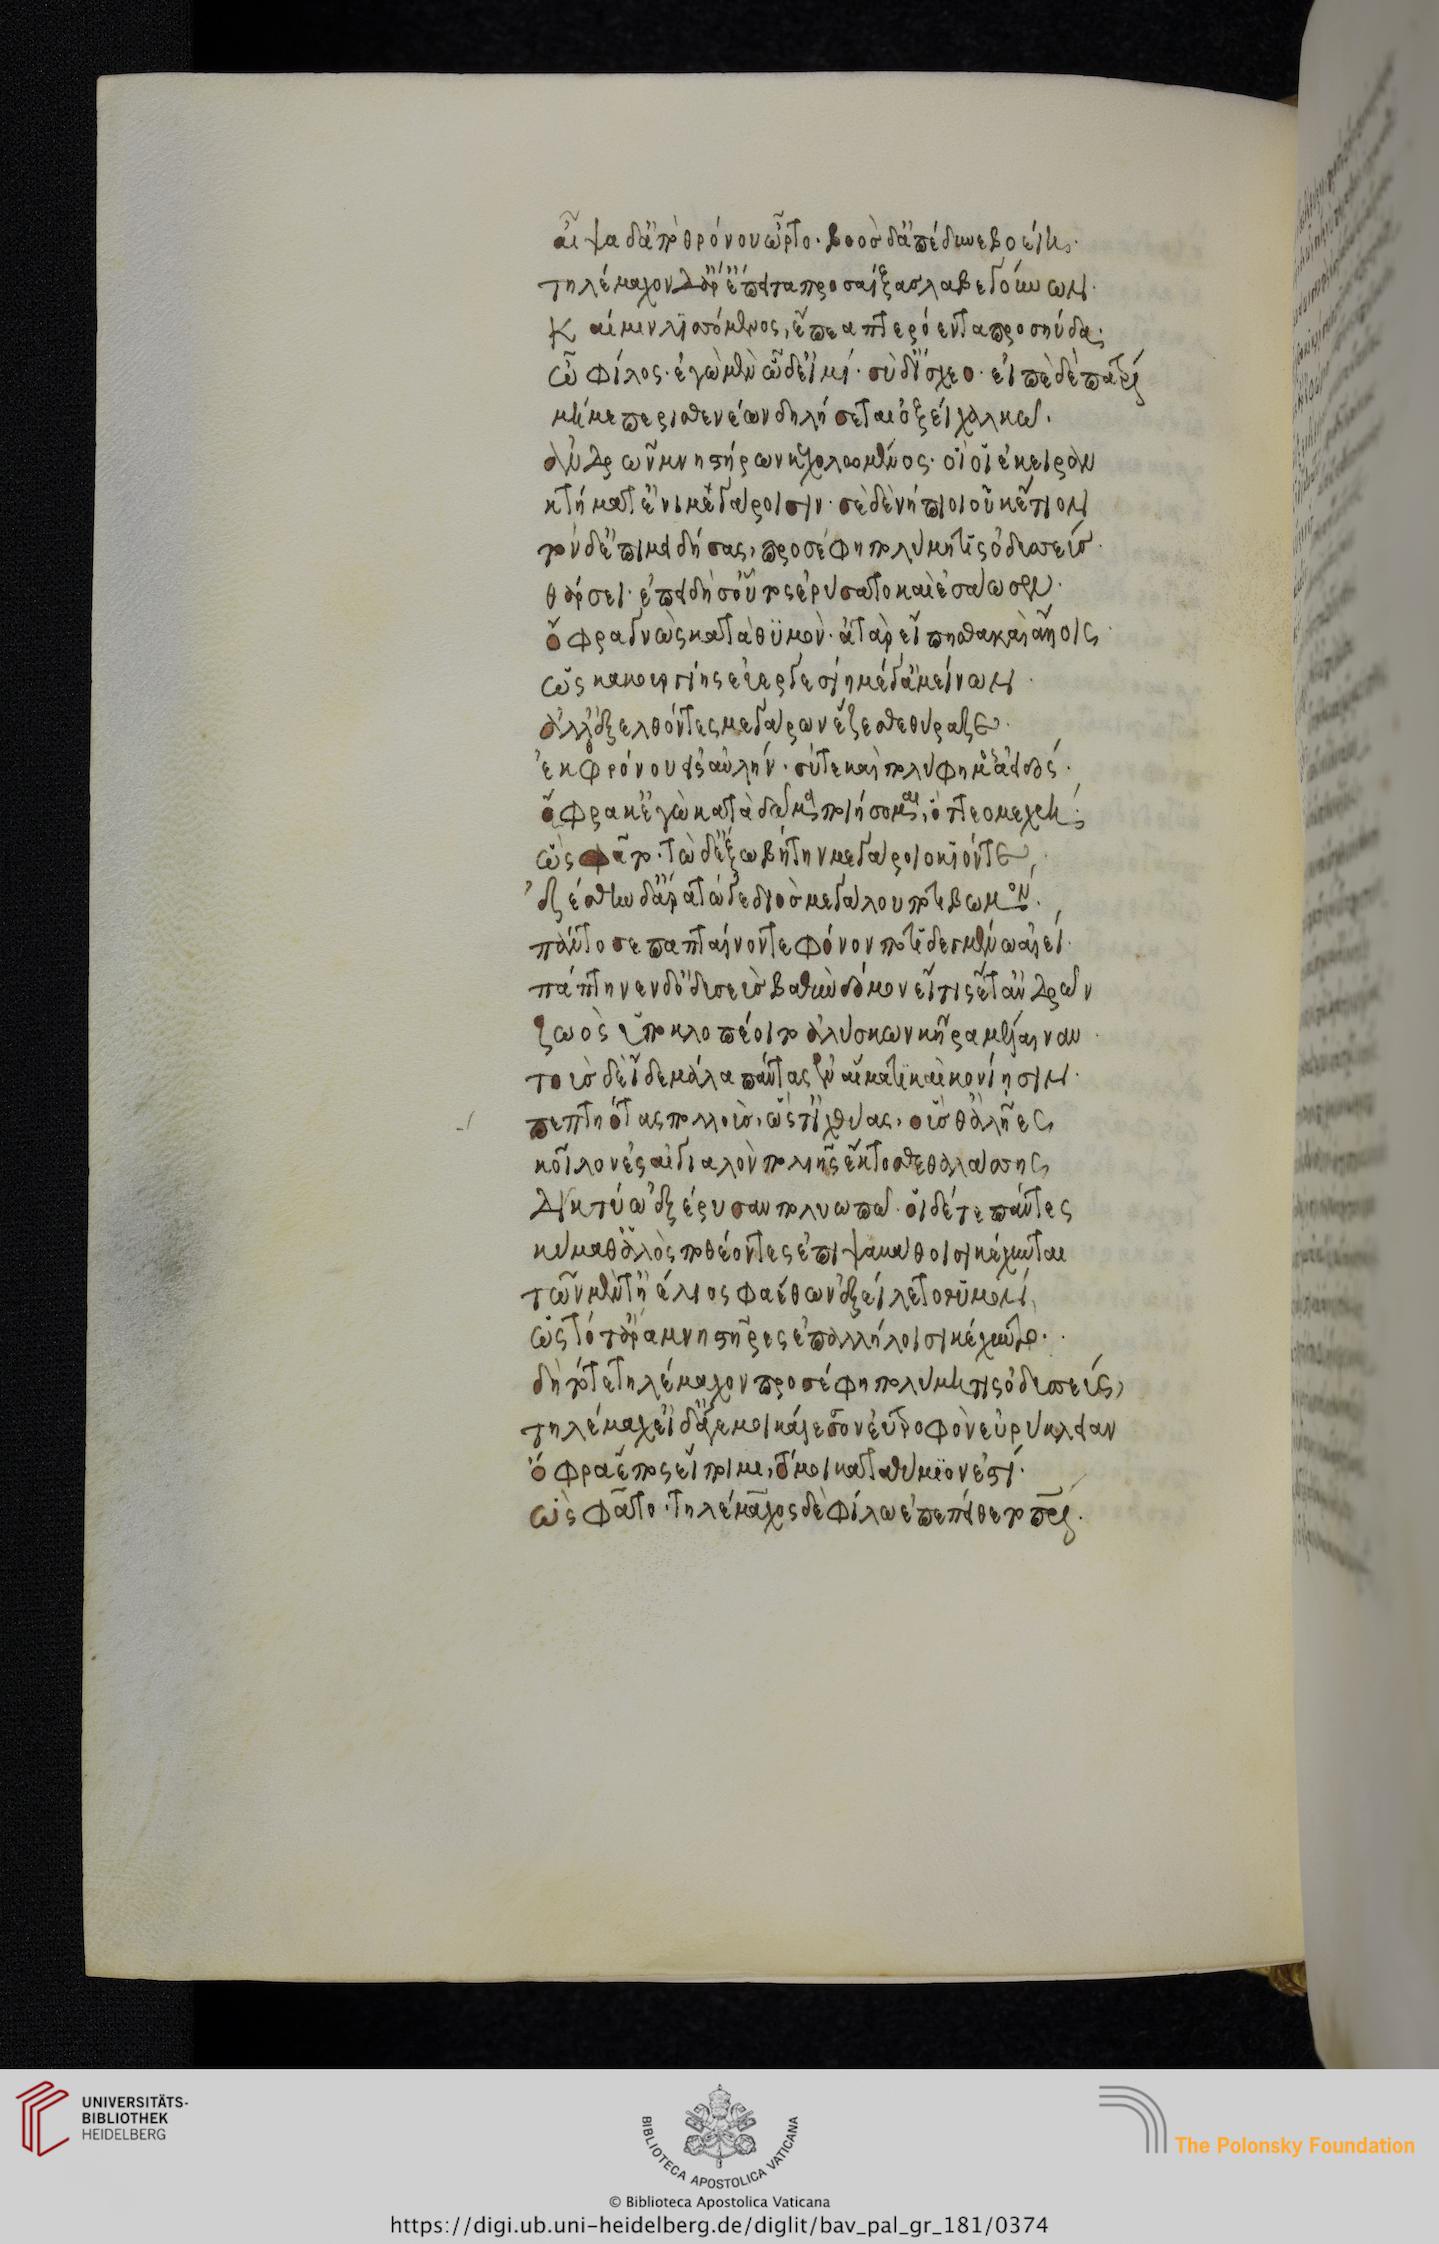 αἶψα δ' ἀπὸ θρόνου ὦρτο· βοὸσ δ' ἀπέδυνε βοείην·
τηλέμαχον δ' ἄρ' ἔπειτα προσαΐξασ λάβε γούνων·
Καί μιν λισσόμενος, ἔπεα πτερόεντα προσηύδα·
ὦ φίλος· ἐγὼ μὲν ὅδ' εἰμί· σὺ δ' ἴσχεο· εἰπὲ δὲ πατρί
μή με περισθενέων δηλήσεται ὀξέϊ χαλκῶ·
ἀνδρῶν μνηστήρων κεχολωμένος· οἵ οἱ ἔκειρον
κτήματ' ἐνὶ μεγάροισιν· σὲ δὲ νήπιοι οὐκ ἔτιον
τὸν δ' ἐπιμειδήσας, προσέφη πολύμητις ὀδυσσεύσ·
θάρσει· ἐπειδή σ' οὗτος ἐρύσατο καὶ ἐσάωσεν·
ὄφρα γνῶς κατὰ θυμὸν· ἀτὰρ εἴπησθα καὶ ἄλλοις·
ὡς κακοεργίης εὐεργεσίη μέγ' ἀμείνων·
ἀλλ' ἐξελθόντες μεγάρων ἕζεσθε θύραζε·
ἐκ φόνου εἰς αὐλήν· σύ τε καὶ πολύφημος ἀοιδός·
ὄφρ' ἂν ἐγὼ κατὰ δῶμα πονήσομαι, ὅττεό με χρή·
ὡς φάτο· τὼ δ' ἔξω βήτην μεγάροιο κιόντε,
ἑζέσθην δ' ἄρα τώ γε διὸσ μεγάλου ποτὶ βωμόν·
πάντοσε παπταίνοντε φόνον ποτιδεγμένω αἰεί·
πάπτηνεν δ' ὀδυσεὺσ καθ' ἑὸν δόμον εἴ τις ἔτ' ἀνδρῶν
ζωὸς ὑποκλοπέοιτο ἀλύσκων κῆρα μέλαιναν·
τοὺσ δὲ ἴδε μάλα πάντας ἐν αἵματι καὶ κονίησιν·
πεπτηότας πολλοὺσ, ὥς τ' ἰχθύας, οὕσ θ' ἁλιῆες
κοῖλον ἐς αἰγιαλὸν πολιῆς ἔκτοσθε θαλάσσης
δικτύω ἐξέρυσαν πολυωπῶ· οἱ δέ τε πάντες
κύμαθ' ἁλὸς ποθέοντες ἐπὶ ψαμάθοισι κέχυνται
τῶν μέν τ' ἠέλιος φαέθων ἐξείλετο θυμόν,
ὣς τότ' ἄρα μνηστῆρες ἐπ' ἀλλήλοισι κέχυντο·
δὴ τότε τηλέμαχον προσέφη πολύμητις ὀδυσσεύς,
τηλέμαχ' εἰ δ' ἄγε μοι κάλεσον τροφὸν εὐρύκλειαν
ὄφρα ἔπος εἴποιμι, τό μοι καταθύμιόν ἐστί·
ὡς φάτο· τηλέμαχος δὲ φίλω ἐπεπείθετο πατρί·
UNIVERSITÄTS-
BIBLIOTHEK
HEIDELBERG
BIBLIOTECA APOSTOLICA VATICANA
The Polonsky Foundation
© Biblioteca Apostolica Vaticana
https://digi.ub.uni-heidelberg.de/diglit/bav_pal_gr_181/0374